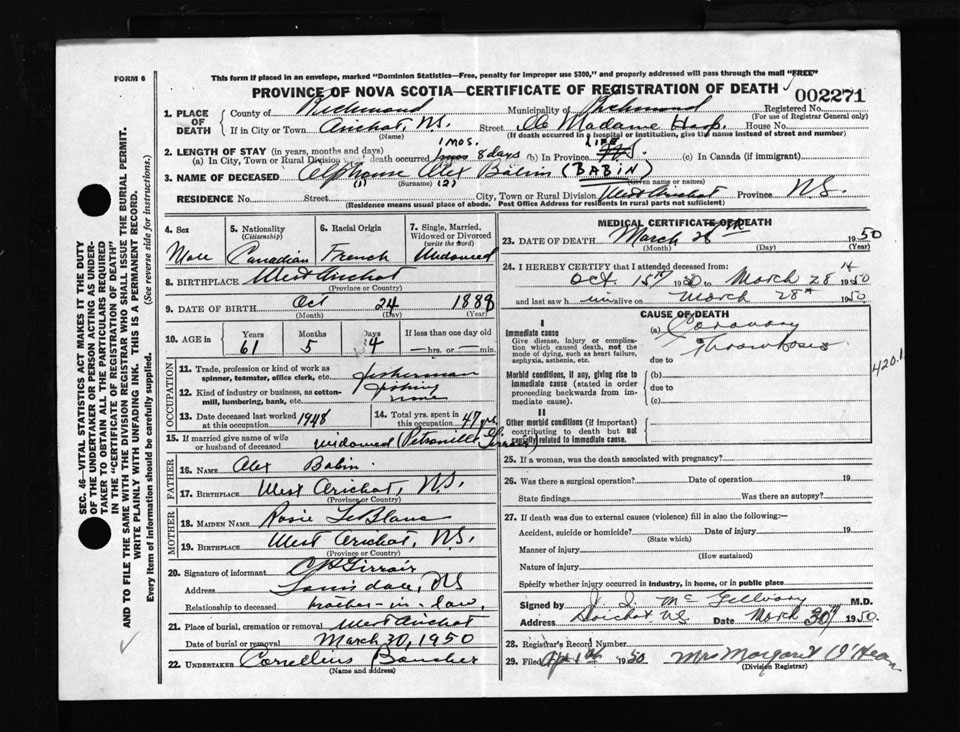 FORM 6
This form if placed in an envelope, marked "Dominion Statistics—Free, penalty for improper use $300," and properly addressed will pass through the mail "FREE"
PROVINCE OF NOVA SCOTIA—CERTIFICATE OF REGISTRATION OF DEATH
002271
1. PLACE OF DEATH
County of Richmond Municipality of Richmond Registered No.
(For use of Registrar General only)
If in City or Town Arichat, N.S. Street Madame Hosp. House No.
(Name) (If death occurred in a hospital or institution, give the name instead of street and number)
2. LENGTH OF STAY (in years, months and days)
(a) In City, Town or Rural Division where death occurred 1 MOS. 8 days (b) In Province LIFE (c) In Canada (if immigrant)
3. NAME OF DECEASED Alphonse Alex Babin (BABIN)
(1) (Surname) (2) (Given name or names)
RESIDENCE No. Street City, Town or Rural Division West Arichat Province N.S.
(Residence means usual place of abode. Post Office Address for residents in rural parts not sufficient)
4. Sex
Male
5. Nationality (Citizenship)
Canadian
6. Racial Origin
French
7. Single, Married, Widowed or Divorced (write the word)
Widowed
8. BIRTHPLACE West Arichat
(Province or Country)
9. DATE OF BIRTH Oct 24 1888
(Month) (Day) (Year)
10. AGE in Years Months Days If less than one day old
61 5 4 hrs. or min.
OCCUPATION
11. Trade, profession or kind of work as spinner, teamster, office clerk, etc. fisherman
12. Kind of industry or business, as cotton-mill, lumbering, bank, etc. fishing
none
13. Date deceased last worked at this occupation 1948
14. Total yrs. spent in this occupation 47 yrs
15. If married give name of wife or husband of deceased widowed (Petronille Girroir)
FATHER
16. NAME Alex Babin
17. BIRTHPLACE West Arichat, N.S.
(Province or Country)
MOTHER
18. MAIDEN NAME Rosie LeBlanc
19. BIRTHPLACE West Arichat, N.S.
(Province or Country)
20. Signature of informant Girroir
Address Louisdale, NS
Relationship to deceased brother-in-law,
21. Place of burial, cremation or removal West Arichat
Date of burial or removal March 30, 1950
22. UNDERTAKER Cornelius Boucher
(Name and address)
MEDICAL CERTIFICATE OF DEATH
23. DATE OF DEATH March 28th 1950
(Month) (Day) (Year)
24. I HEREBY CERTIFY that I attended deceased from:
Oct 15th 1950 to March 28th 1950
and last saw h im alive on March 28th 1950.
CAUSE OF DEATH
I
Immediate cause
Give disease, injury or complication which caused death, not the mode of dying, such as heart failure, asphyxia, asthenia, etc.
(a) Coronary Thrombosis
due to
420.1
Morbid conditions, if any, giving rise to immediate cause (stated in order proceeding backwards from immediate cause).
(b)
due to
(c)
II
Other morbid conditions (if important) contributing to death but not causally related to immediate cause.
25. If a woman, was the death associated with pregnancy?
26. Was there a surgical operation? Date of operation 19
State findings Was there an autopsy?
27. If death was due to external causes (violence) fill in also the following—
Accident, suicide or homicide? Date of injury 19
(State which)
Manner of injury
(How sustained)
Nature of injury
Specify whether injury occurred in industry, in home, or in public place
Signed by McGillvary M.D.
Address Arichat N.S. Date March 30th 1950.
28. Registrar's Record Number
29. Filed Apr 1st 1950 Mrs Margaret O'Hearn
(Division Registrar)
SEC. 46—VITAL STATISTICS ACT MAKES IT THE DUTY
OF THE UNDERTAKER OR PERSON ACTING AS UNDER-
TAKER TO OBTAIN ALL THE PARTICULARS REQUIRED
IN THE "CERTIFICATE OF REGISTRATION OF DEATH"
AND TO FILE THE SAME WITH THE DIVISION REGISTRAR WHO SHALL ISSUE THE BURIAL PERMIT.
WRITE PLAINLY WITH UNFADING INK. THIS IS A PERMANENT RECORD.
Every item of information should be carefully supplied. (See reverse side for instructions.)